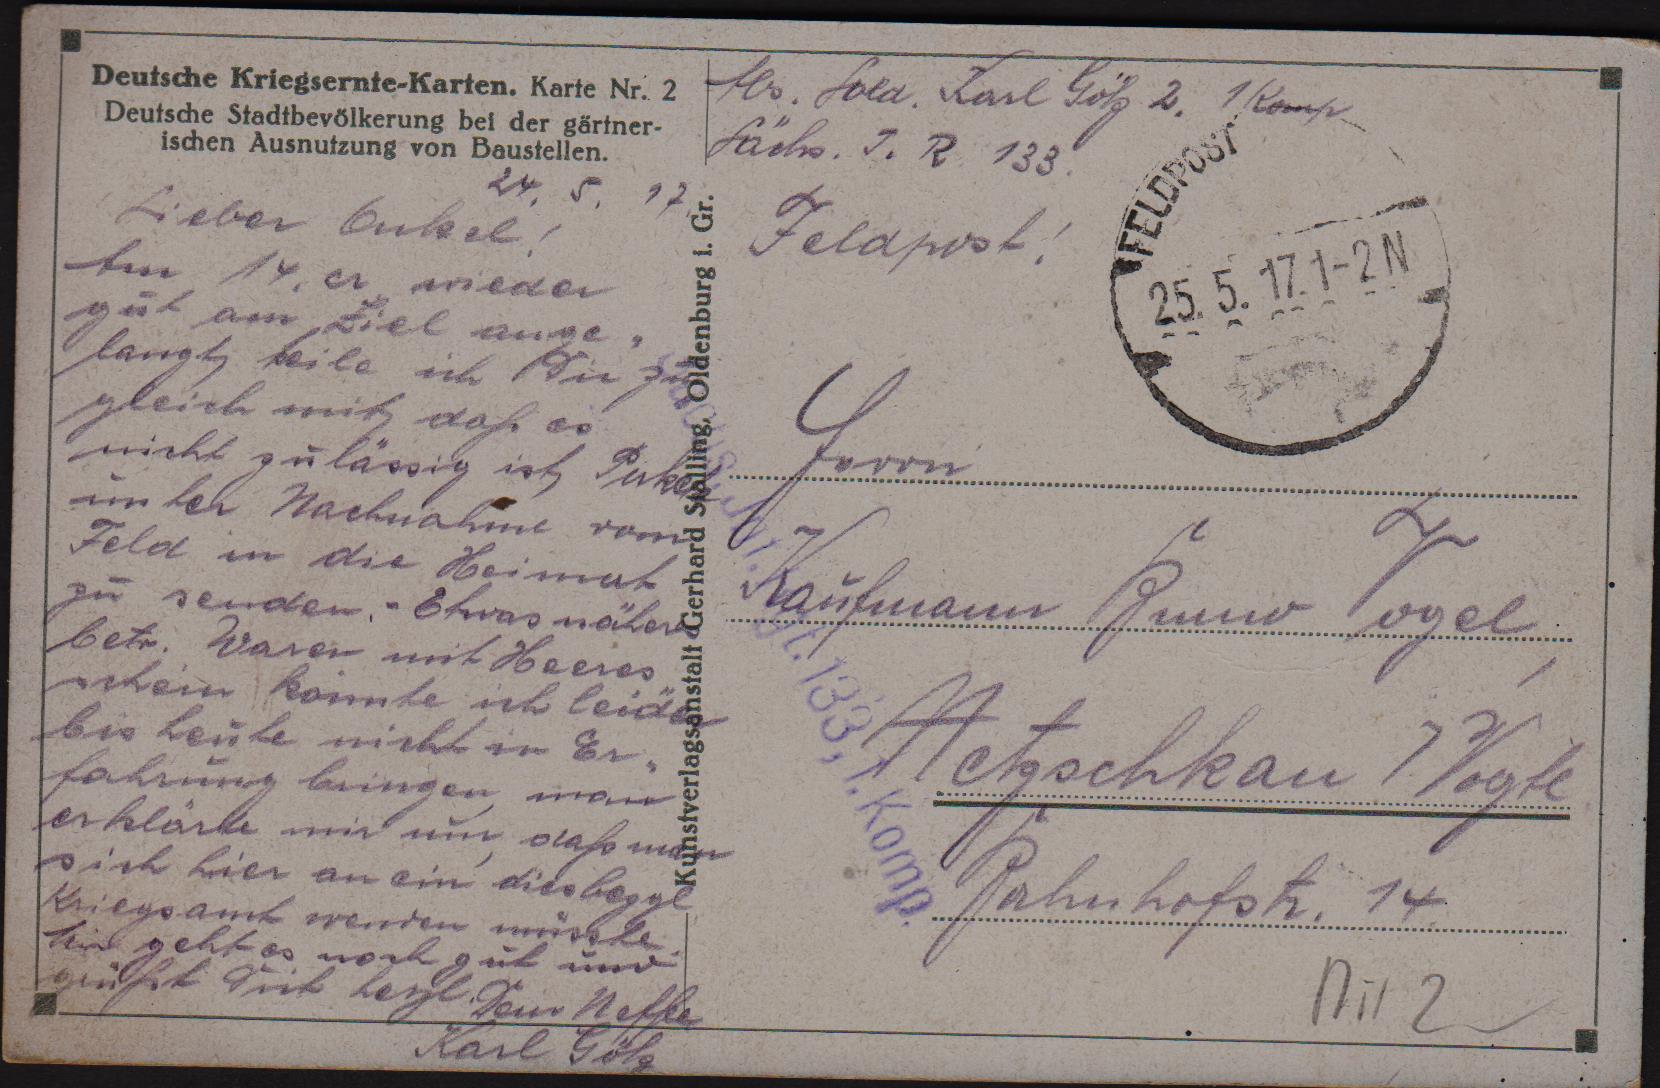 Deutsche Kriegsernte-Karten. Karte Nr. 2
Deutsche Stadtbevölkerung bei der gärtner-
ischen Ausnutzung von Baustellen.
24. 5. 17.
Lieber Onkel!
Am 14. er. wieder
gut am Ziel ange-
langt, teile ich Dir zu
gleich mit, daß es
nicht zulässig ist, Pakete
unter Nachnahme vom
Feld in die Heimat
zu senden. - Etwas näheres
betr. Waren mit Heeres
schein konnte ich leider
bis heute nicht in Er-
fahrung bringen, man
erklärte mir nur, daß man
sich hier an ein diesbezgl
Kriegsamt wenden müsste.
Mir geht es noch gut und
grüßt Dich herzl. Dein Neffe
Karl Gölz
Kunstverlagsanstalt Gerhard Stalling, Oldenburg i. Gr.
Abs. Sold. Karl Gölz 2. 1 Komp
Sächs. I. R. 133.
Feldpost!
FELDPOST
25. 5. 17. 1-2 N
Herrn
Kaufmann Bruno Vogel,
Netzschkau i/Vogtl
Bahnhofstr. 14
133, 1. Komp.
Mil 2